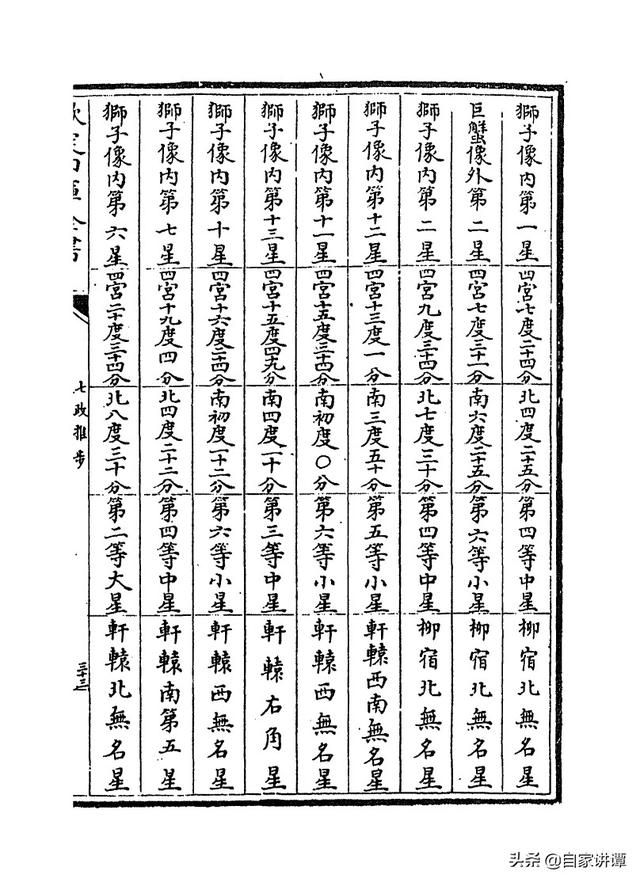 獅子像内第一星 四宮七度二十四分 北四度二十五分 第四等中星 柳宿北無名星
巨蟹像外第二星 四宮七度三十一分 南六度二十五分 第六等小星 柳宿北無名星
獅子像内第二星 四宮九度三十四分 北七度三十分 第四等中星 柳宿北無名星
獅子像内第十二星 四宮十三度一分 南三度五十分 第五等小星 軒轅西南無名星
獅子像内第十一星 四宮十五度三十四分 南初度〇分 第六等小星 軒轅西無名星
獅子像内第十三星 四宮十五度四十九分 南四度一十分 第三等中星 軒轅右角星
獅子像内第十星 四宮十六度二十四分 南初度一十二分 第六等小星 軒轅西無名星
獅子像内第七星 四宮十九度四分 北四度二十二分 第四等中星 軒轅南第五星
獅子像内第六星 四宮二十度三十四分 北八度三十分 第二等大星 軒轅北無名星
欽定四庫全書
七政推步
三十三
头条 @自家讲谭